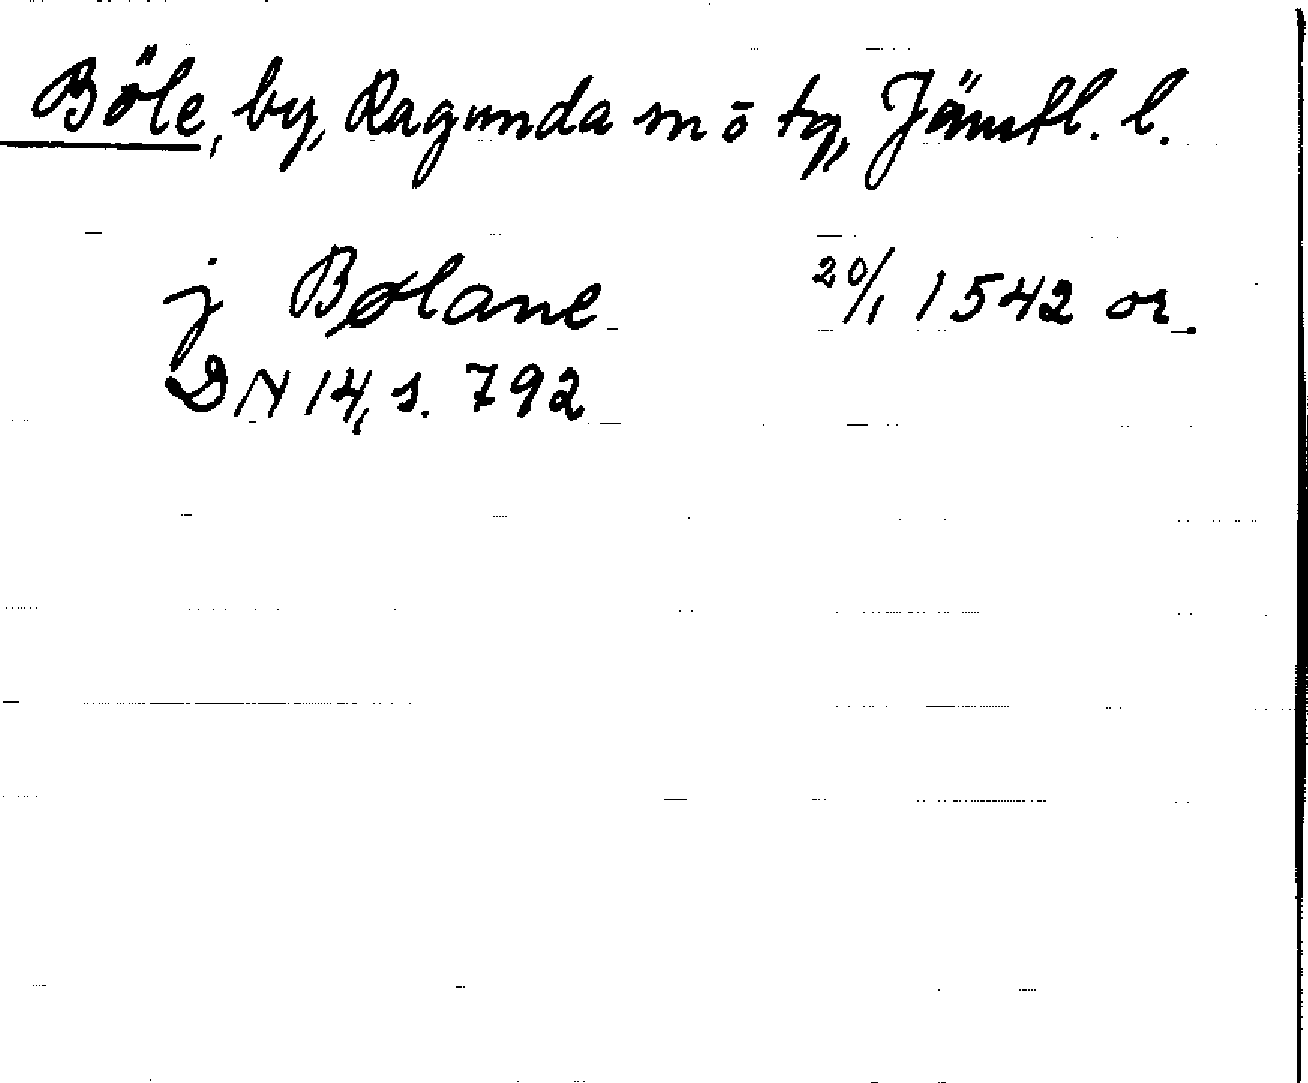 Böle, by, Ragunda sn o tg, Jämtl. l.
j Bølane 20/1 1542 or.
DN 14, s. 792